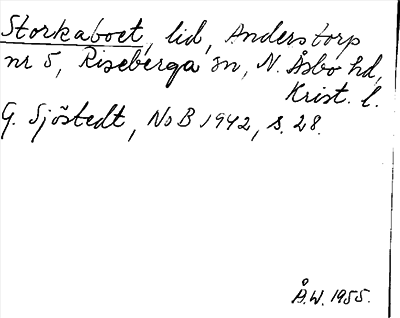 Storkaboet, lid, Anderstorp
nr 5, Riseberga sn, N. Åsbo hd,
Krist. l.
G. Sjöstedt, NoB 1942, s. 28.
Å.W. 1955.